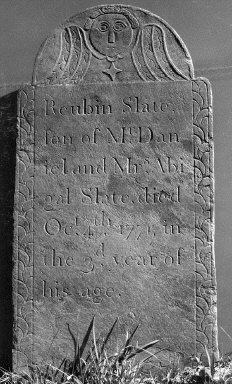 Reubin Slate,
ſon of Mr. Dan
iel and Mrs. Abi
gal Slate, died
Oct. 4th 1771, in
the 3d. year of
his age.